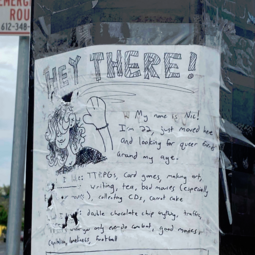 EMERG
ROU
612-348-
HEY THERE!
My name is Nic!
I'm 22, just moved here
and looking for queer
around my age.
I like: TTRPGs, card games, making art,
writing, tea, bad movies (especially
), collecting CDs, carrot cake
double chocolate chip muffins,
good movies,
football